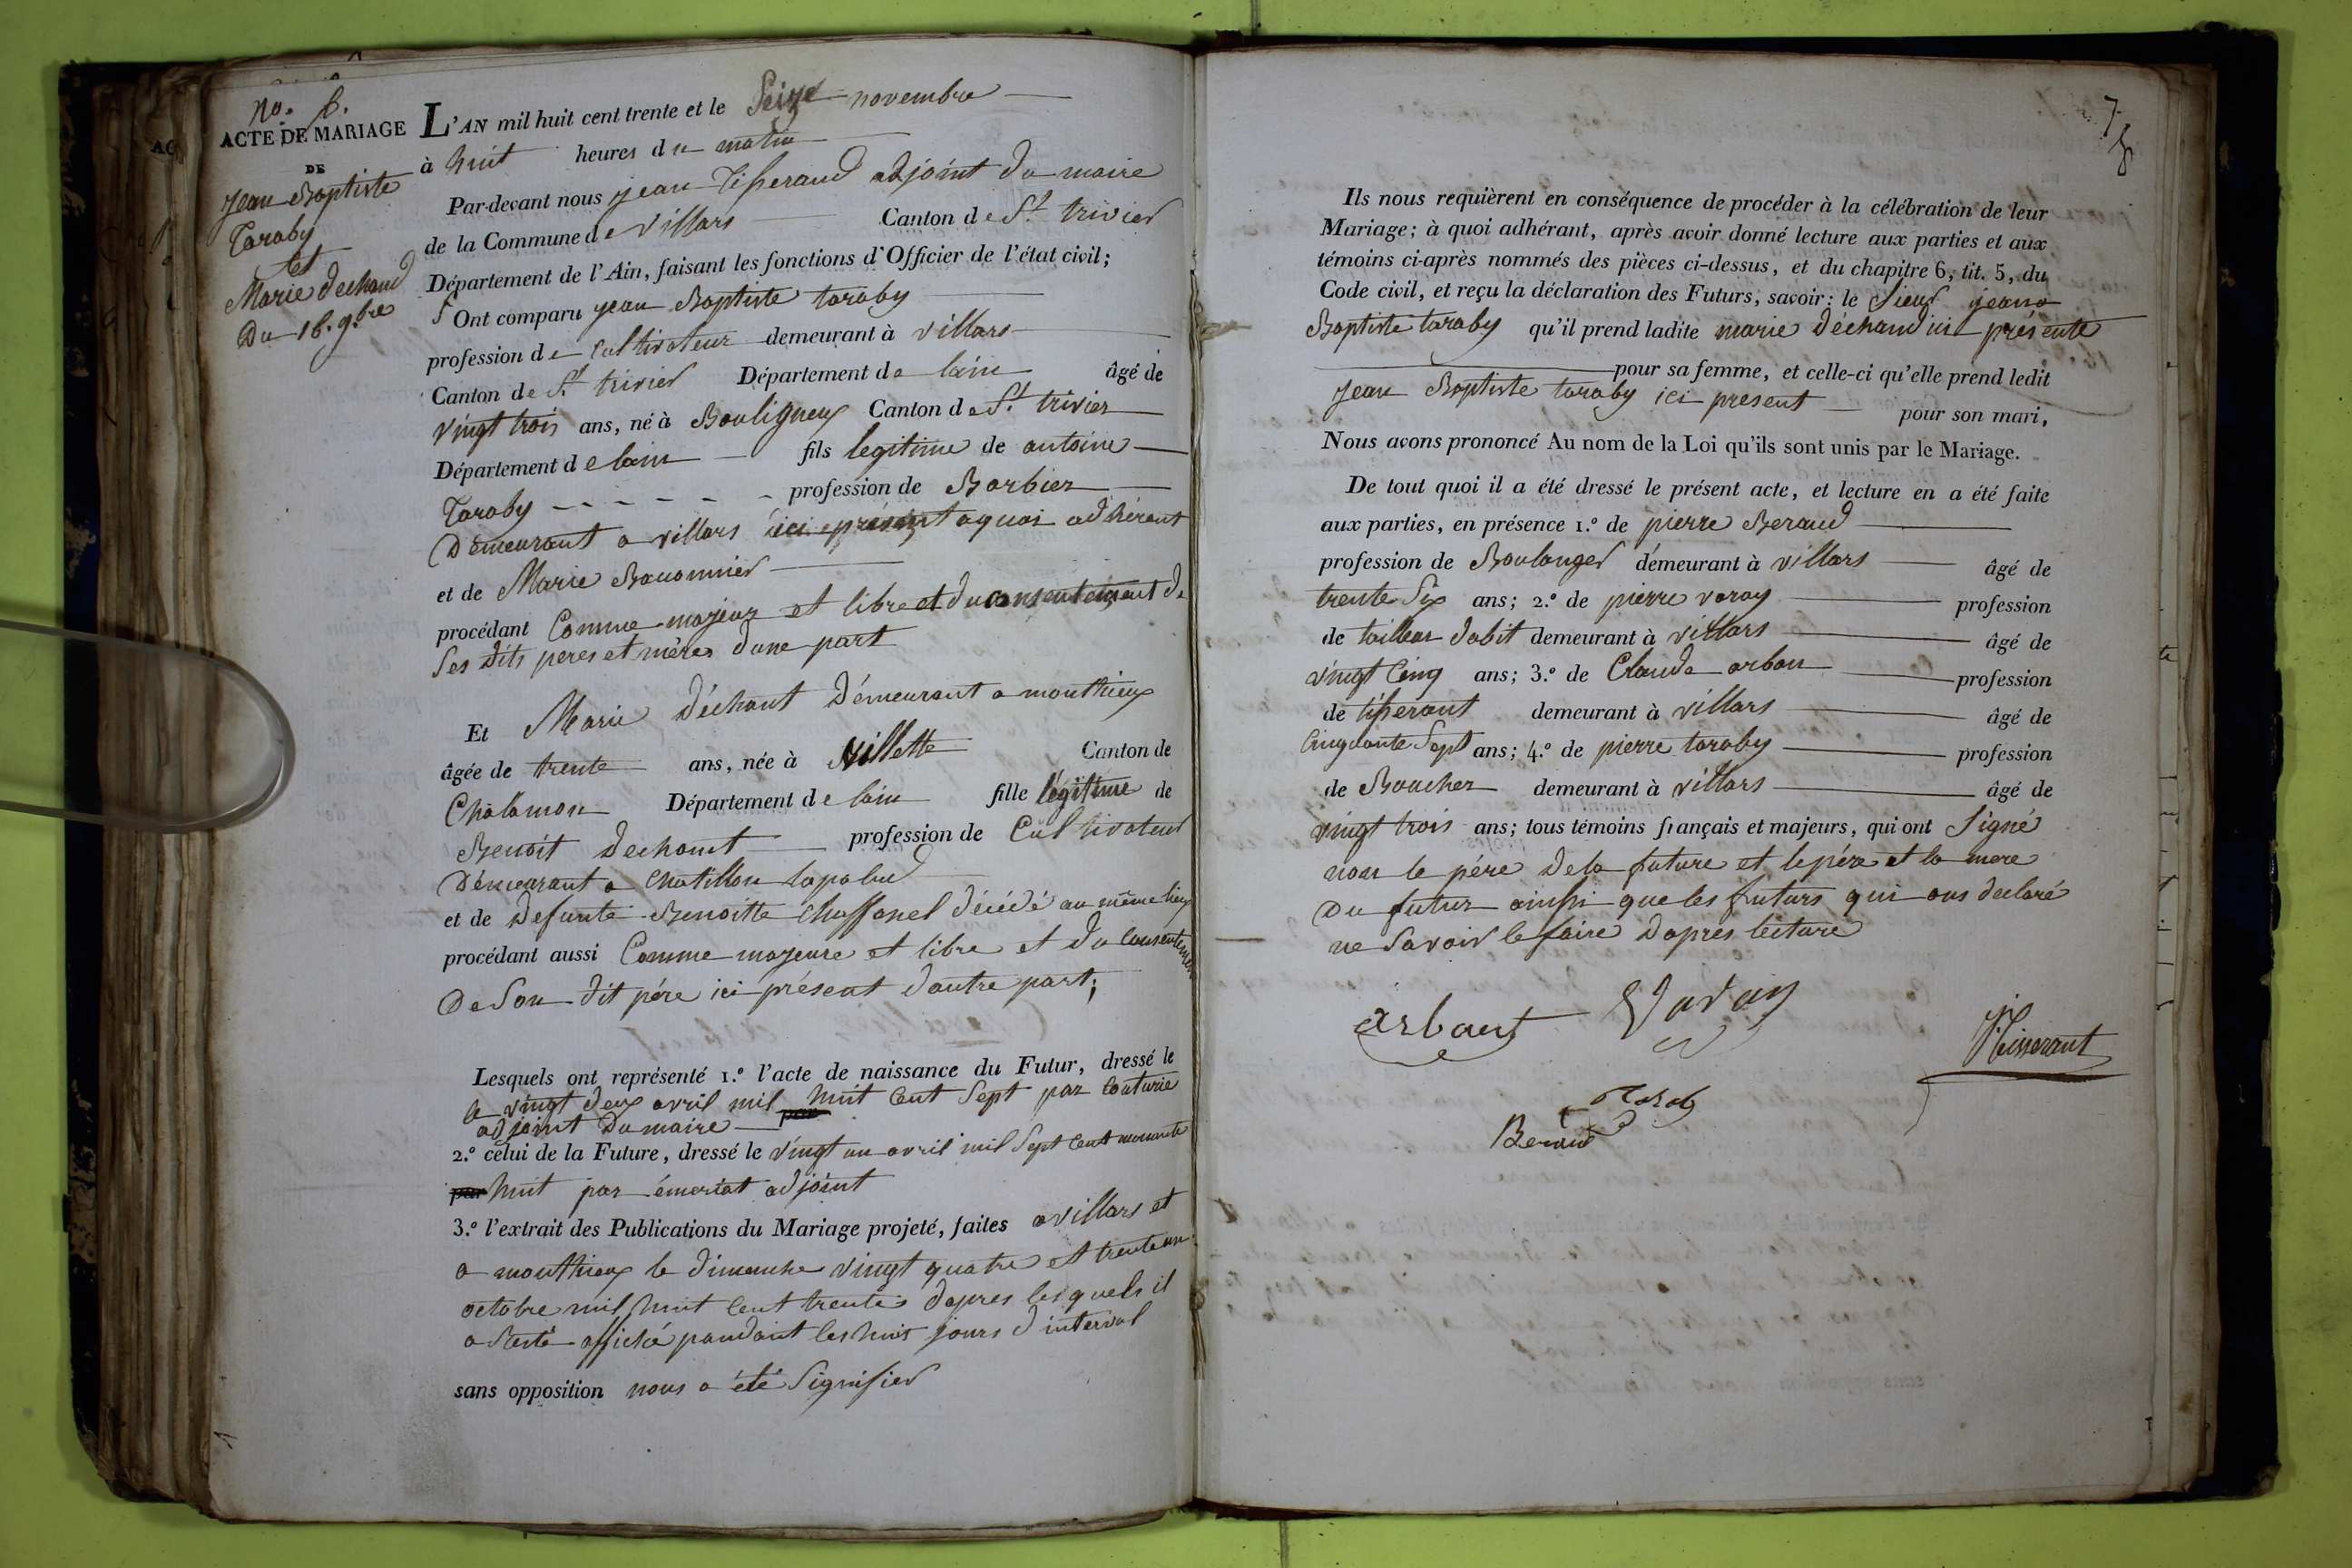 No. 6.
ACTE DE MARIAGE
DE
jean Baptiste
Taraby
et
Marie dechaud
Du 16. 9.bre
L'AN mil huit cent trente et le Seize novembre
à huit heures du matin
Par-devant nous jean Tisserand adjoint du maire
de la Commune de villars Canton de St. trivier
Département de l'Ain, faisant les fonctions d'Officier de l'état civil;
Ont comparu jean Baptiste taraby
profession de cultivateur demeurant à villars
Canton de St. trivier Département de lain âgé de
vingt trois ans, né à Bouligneux Canton de St. trivier
Département de lain fils legitime de antoine
Taraby profession de Barbier
Demeurant a villars ici présent aquoi adhérant
et de Marie Bouomnier
procédant Comme majeur et libre et du consentement de
ses dits peres et mères dune part
Et Marie déchant démeurant a monthieux
âgée de trente ans, née à villette Canton de
Chalamon Département de lain fille légitime de
Benoit dechant profession de Cultivateur
Démeurant a Chatillon lapalud
et de defunte Benoitte Chaffanel décédé au même lieu
procédant aussi Comme majeure et libre et du consentement
De Son dit pére ici présent dautre part;
Lesquels ont représenté 1.º l'acte de naissance du Futur, dressé le
le vingt deux avril mil huit Cent Sept par Couturie
adjoint du maire par
2.º celui de la Future, dressé le vingt un avril mil Sept Cent nonante
par huit par émeriat adjoint
3.º l'extrait des Publications du Mariage projeté, faites a villars et
a monthieux le dimanche vingt quatre et trente un
octobre mil huit Cent trente dapres lesquels il
a resté affiché pandant les huit jours d interval
sans opposition nous a été Signifier
7
Ils nous requièrent en conséquence de procéder à la célébration de leur
Mariage; à quoi adhérant, après avoir donné lecture aux parties et aux
témoins ci-après nommés des pièces ci-dessus, et du chapitre 6, tit. 5, du
Code civil, et reçu la déclaration des Futurs, savoir: le Sieur jean
Baptiste taraby qu'il prend ladite marie déchaud ici présente
pour sa femme, et celle-ci qu'elle prend ledit
jean Baptiste taraby ici present pour son mari,
Nous avons prononcé Au nom de la Loi qu'ils sont unis par le Mariage.
De tout quoi il a été dressé le présent acte, et lecture en a été faite
aux parties, en présence 1.º de pierre Beraud
profession de Boulanger démeurant à villars âgé de
trente Six ans; 2.º de pierre varay profession
de tailleur dabit demeurant à villars âgé de
vingt Cinq ans; 3.º de Claude arban profession
de tisserant demeurant à villars âgé de
Cinquante Sept ans; 4.º de pierre taraby profession
de Boucher demeurant à villars âgé de
vingt trois ans; tous témoins français et majeurs, qui ont Signé
non le pére de la future et le pére et la mere
Du futur ainssi que les futurs qui ons declaré
ne Savoir le faire dapres lecture
arbant Varay
J. Tisserant
Taraby
Beraud